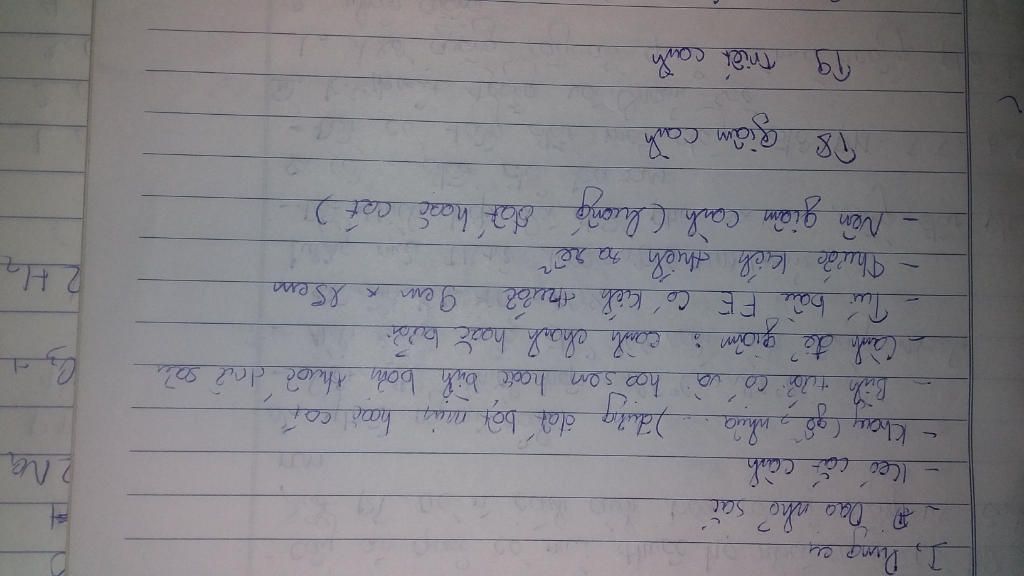 I, Dụng cụ
- Dao nhỏ sắc
- Kéo cắt cành
- Khay (gỗ, nhựa ...) đựng đất bột mịn hoặc cát
- Bình tưới có vò hoa sen hoặc bình bơm thuốc trừ sâu
- Cành để giâm: cành chanh hoặc bưởi
- Túi bầu PE có kích thước 9cm x 15cm
- Thuốc kích thích ra rễ
- Nền giâm cành (luống đất hoặc cát)
T8 giâm cành
T9 chiết cành
2Na
2H₂